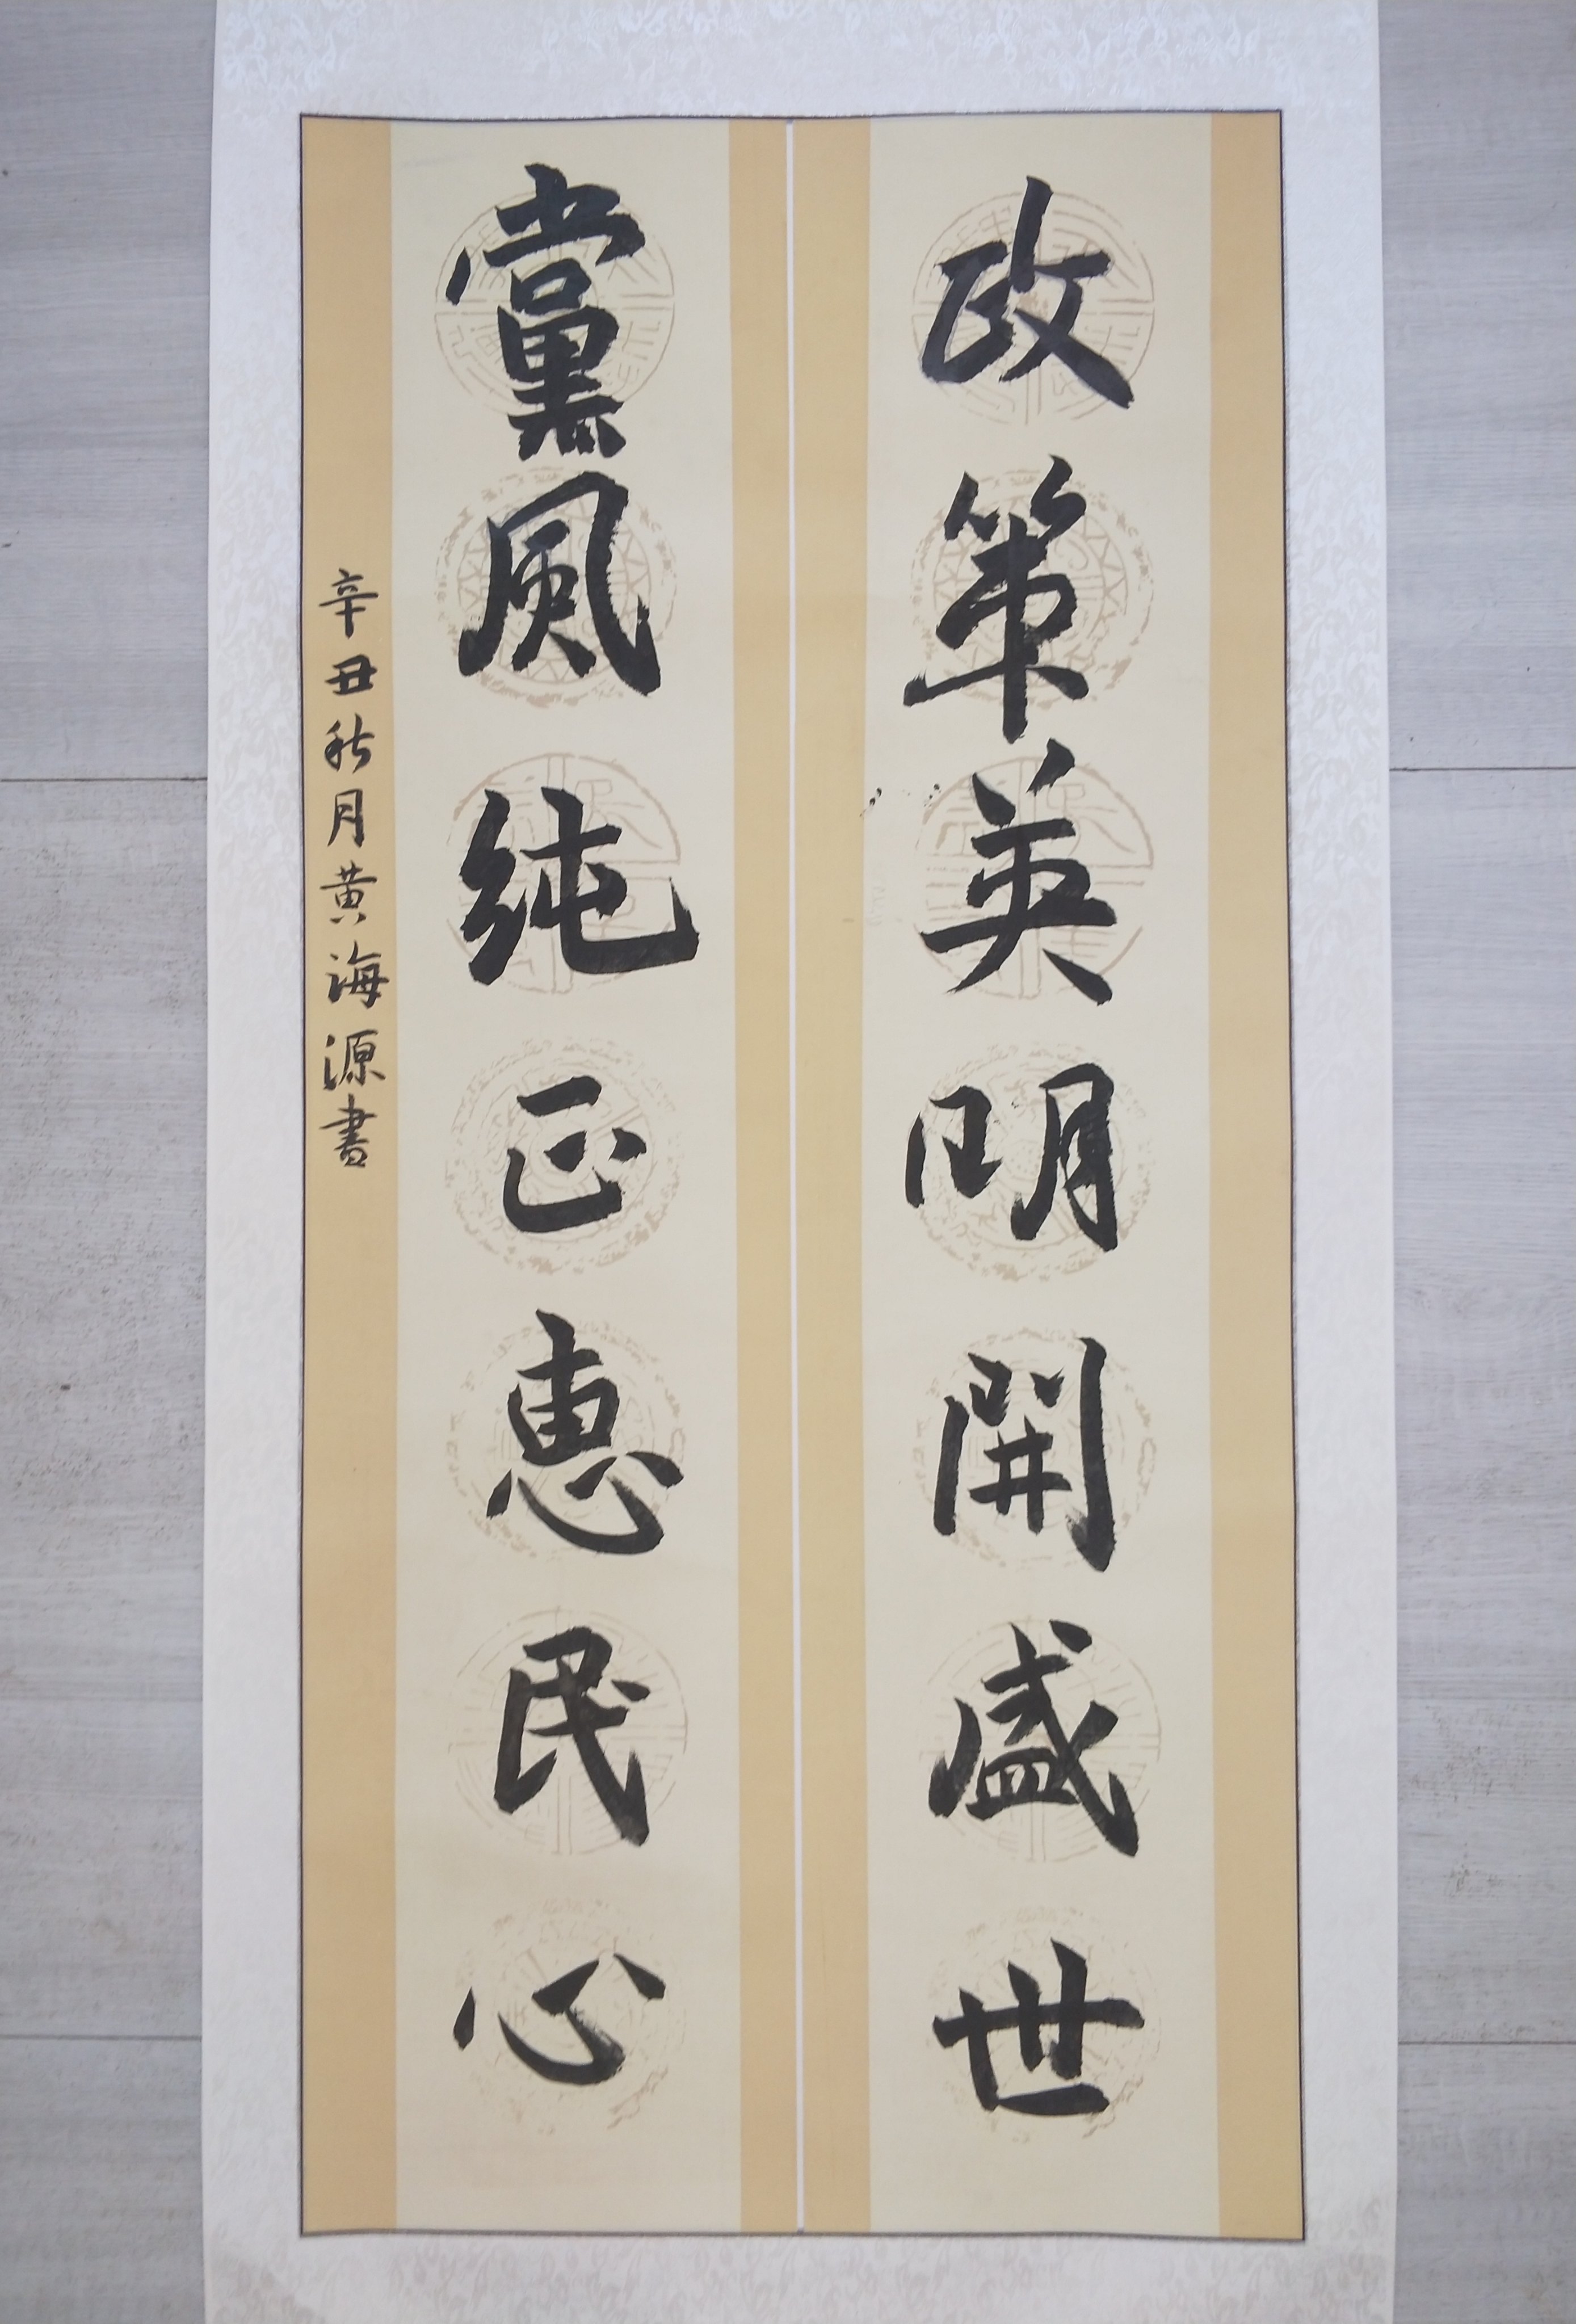 政策英明開盛世
黨風純正惠民心
辛丑秋月黄海源書